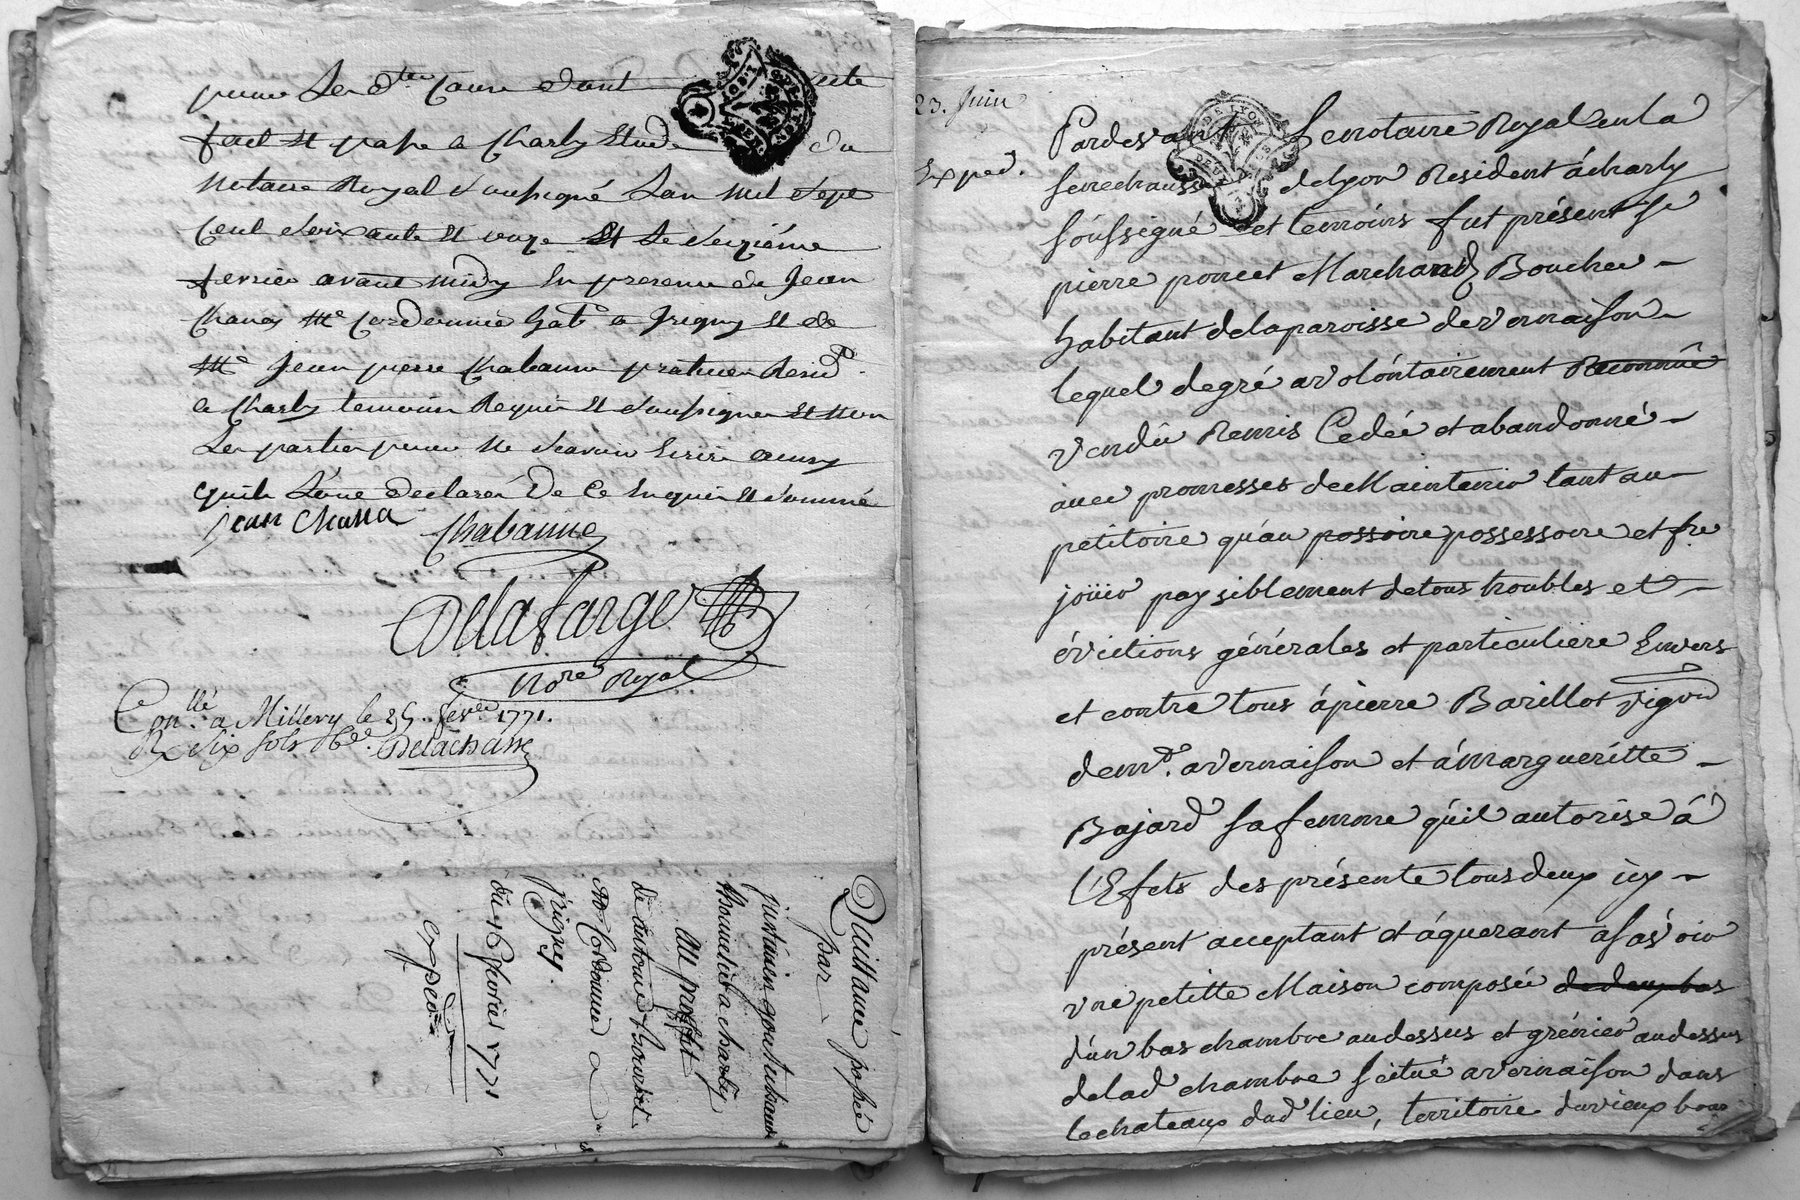 pour Les d.tes Causes dont acte
fait et passé a Charly Etude du
Notaire Royal soussigné L'an mil sept
Cent soixante et onze Et Le seizième
fevrier avant midy En presence de Jean
Chana Me Cordonnier habt. a Irigny et de
Me Jean pierre Chabanne praticien Resid.
a Charly temoins Requis et soussignes et non
Les parties pour ne scavoir Ecrire
qu'ils L'ont declaré De Ce Enquis et sommé
jean Chana Chabanne
Delafarge
Nore Royal
Conllé a Millery le 25 fevrier 1771.
R. dix sols Delachasse
Quittance passée
par
a charly
Au proffit
de antoine
Cordonnier a
Irigny.
du 16 fevrier 1771
expedié
23. Juin
Exped.
Pardevant Le notaire Royal en la
senechaussée de lyon Resident á charly
soússigné et temoins fut présent sr
pierre poncet Marchand Boucher
habitant de la paroisse de vernaison
lequel de gré a volóntairement Reconnû
vendû Remis Cedée et abandonné
avec promesses de Maintenir tant au
petitoire qu'au possoire possessoire et fre
joüir paysiblement de tous troubles et
évictions générales et particuliere Envers
et contre tous á pierre Barillot vigon
demt. a vernaison et á marguéritte
Bajard sa femme qu'il autorise á
l'Effets des présente tous deux icy
présent acceptant et áquerant a savoir
une petitte Maison composée de deux bas
d'un bas chambre au dessus et grénier au dessus
de lad chambre scitué a vernaison dans
le chateaux dud lieu, territoire du vieux bourg